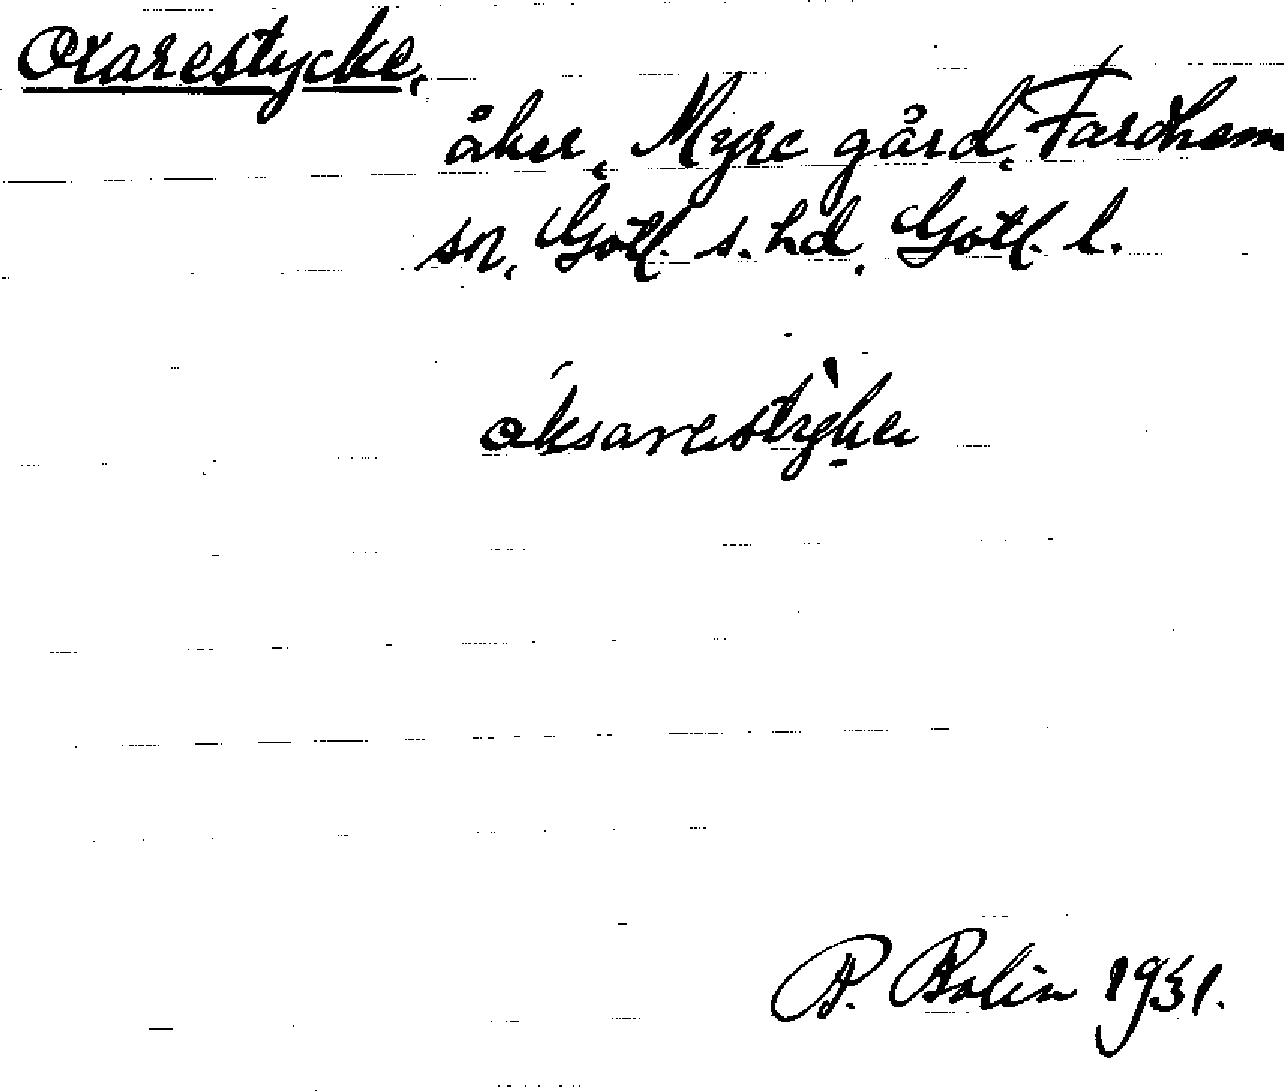 Oxarestycke,
åker, Myre gård, Fardhem
sn, Gotl. s. hd, Gotl. l.
oksarestyke
P. Bolin 1931.